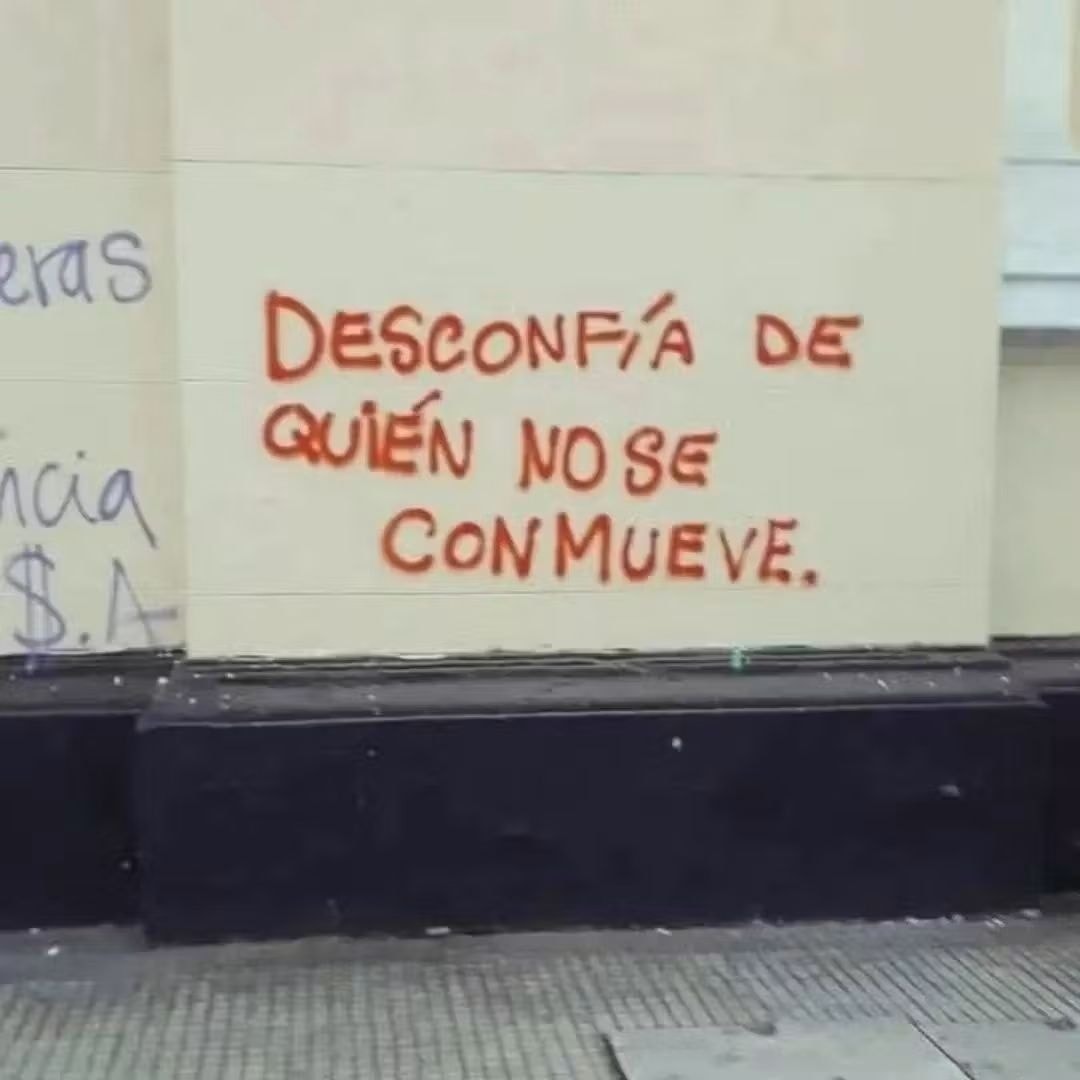 DESCONFÍA DE
QUIÉN NO SE
CONMUEVE.
eras
ncia
$.A